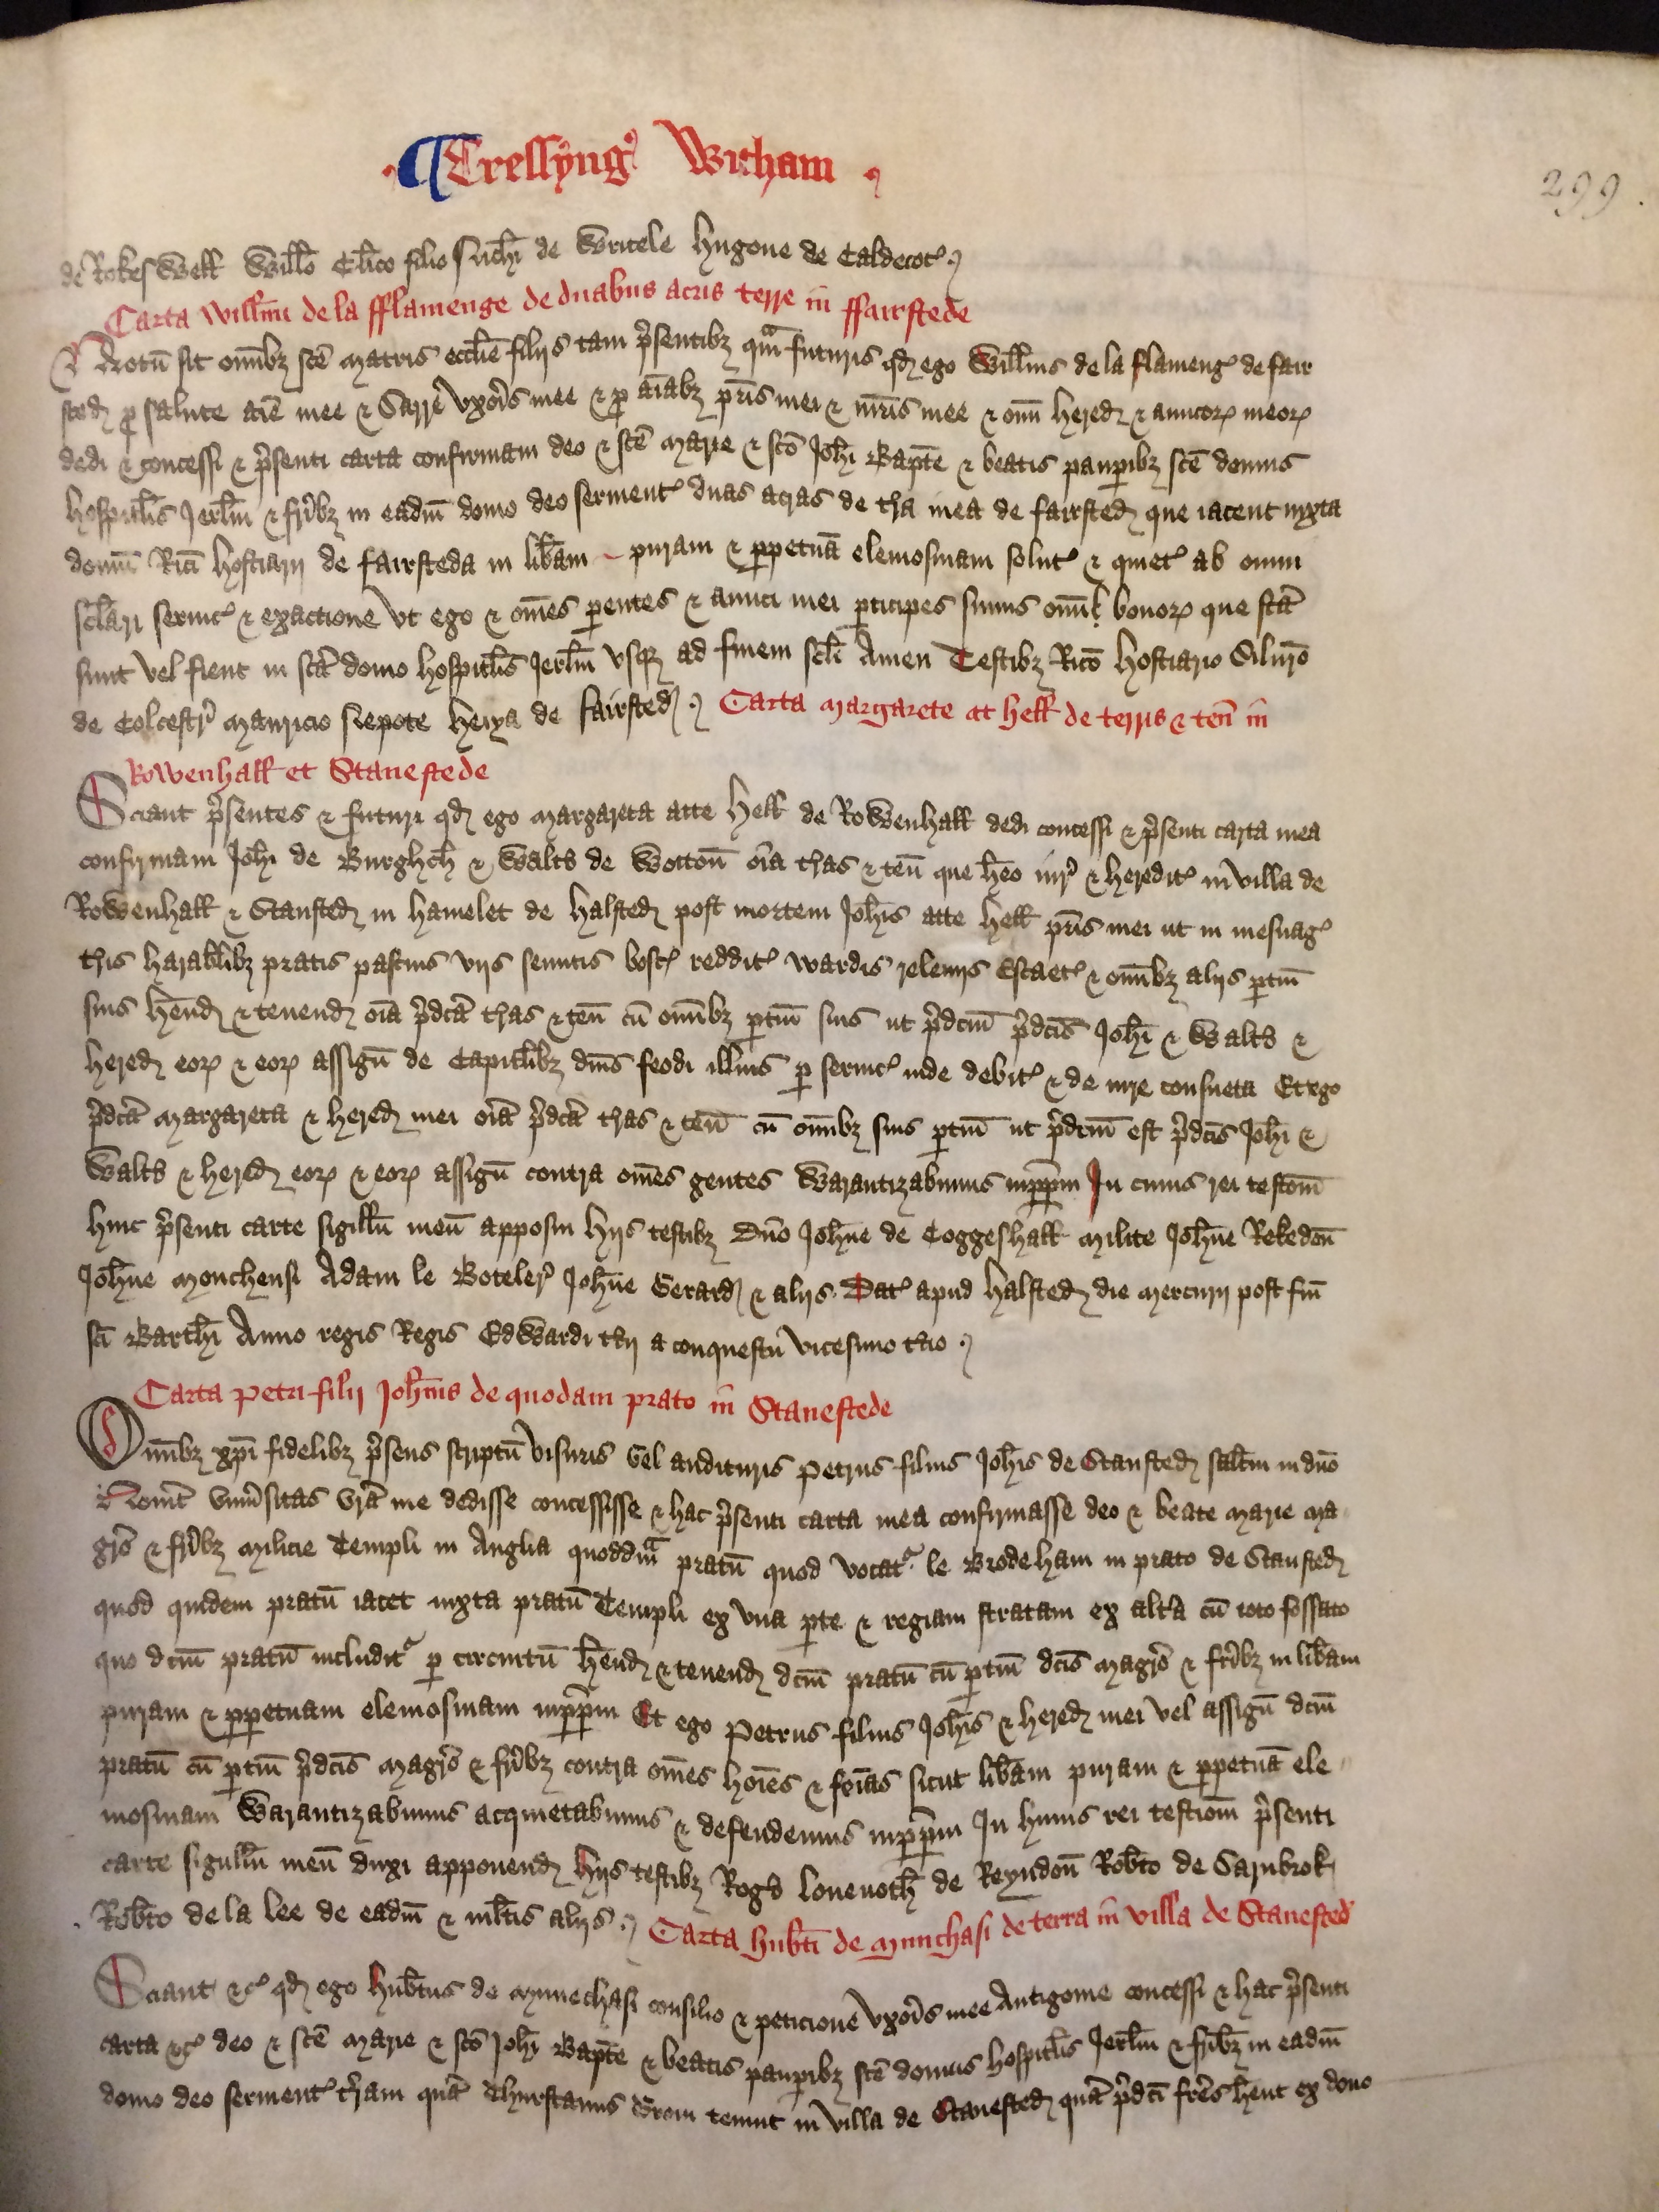 ¶ Cressyng' Witham
299
de Rokeswell Willo Clico filio Michi de Writele Hugone de Caldecot'
Carta Willmi de la fflamenge de duabus acris terre in ffairstede
Notū sit omībz scē Matris ecclie filijs tam psentibz qm futuris qd ego Willms de la flameng' de fair
sted p salute aīe mee & Sarre vxoris mee & p aīabz pris mei & mris mee & omī hered & amicoꝝ meoꝝ
dedi & concessi & psenti carta confirmam deo & scē Marie & scō Johi Bapte & beatis paupibz scē domus
hospitlis Jerlm & fribz in eadm domo deo seruient' duas acras de tra mea de fairsted que iacent iuxta
domū Rici hostiarij de fairsteda in libam puram & ppetuā elemosinam solut' & quiet' ab omni
sclari seruic' & exactione vt ego & omes pentes & amici mei pticipes simus omī bonoꝝ que fcā
sunt vel fient in scā domo hospitlis Jerlm vsqz ad finem scli Amen Testibz Rico hostiario
de Colcestr Mauricio de fairsted Carta Margarete at hell de terris & ten in
Rowenhall et Stanestede
Sciant psentes & futuri qd ego Margareta atte Hell de Rowenhall dedi concessi & psenti carta mea
confirmam Johi de Burghch & Walto de Wotton oīa tras & ten que heo iur' & heredit' in villa de
Rowenhall & Stansted in hamelet de Halsted post mortem Johis atte Hell pris mei ut in mesuag'
tris harablibz pratis pascuis vijs semitis bosc' reddit' wardis releuijs Escaet' & omībz alijs ptin
suis hend & tenend oīa pdcā tras & ten cū omībz ptin suis ut pdcm pdcis Johi & Walto &
hered eoꝝ & eoꝝ assign de Capitlibz dnis feodi illius p seruic' inde debit' & de iure consueta Et ego
pdcā Margareta & hered mei oīa pdcā tras & ten cū omībz suis ptin ut pdcm est pdcis Johi &
Walto & hered eoꝝ & eoꝝ assign contra omes gentes Warantizabimus inppm In cuius rei testom
huic psenti carte sigillū meū apposui hijs testibz Dno Johne de Coggeshall Milite Johne Rekedon
Johne Monchensi Adam le Boteler Johne Gerard & alijs Dat' apud Halsted die Mercurij post fm
sci Barthi Anno regis Regis Edwardi tcij a conquestu vicesimo tcio
Carta Petri filij Johnis de quodam prato in Stanestede
Omībz xpi fidelibz psens scriptū visuris vel audituris Petrus filius Johis de Stansted saltm in dno
Nouit vniusitas vra me dedisse concessisse & hac psenti carta mea confirmasse deo & beate Marie Ma
gro & fribz Milicie Templi in Anglia quoddm pratū quod vocat' le Brodeham in prato de Stansted
quod quidem pratū iacet iuxta pratū Templi ex vna pte & regiam stratam ex altā cū toto fossato
quo dcm pratū includit' p circuitū hend & tenend dcm pratū cū ptin dcis Magro & fribz in libam
puram & ppetuam elemosinam inppm Et ego Petrus filius Johis & hered mei vel assign dcm
pratū cū ptin pdcis Magro & fribz contra omes hoīes & feīas sicut libam puram & ppetuā ele
mosinam Warantizabimus acquietabimus & defendemus inppm In huius rei testiom psenti
carte sigillū meū duxi apponend Hijs testibz Rogo de Reyndon Robto de Sarnbrok
Robto de la Lee de eadm & mltis alijs Carta Hubti de Munchasi de terra in villa de Stanested
Sciant &c' qd ego Hubtus de Munechasi consilio & peticione vxoris mee Antigome concessi & hac psenti
carta &c' deo & scē Marie & scō Johi Bapte & beatis paupibz scē domus hospitlis Jerlm & fribz in eadm
domo deo seruient' tram quā Thurstanus tenuit in villa de Stanested quā pdci fres hent ex dono